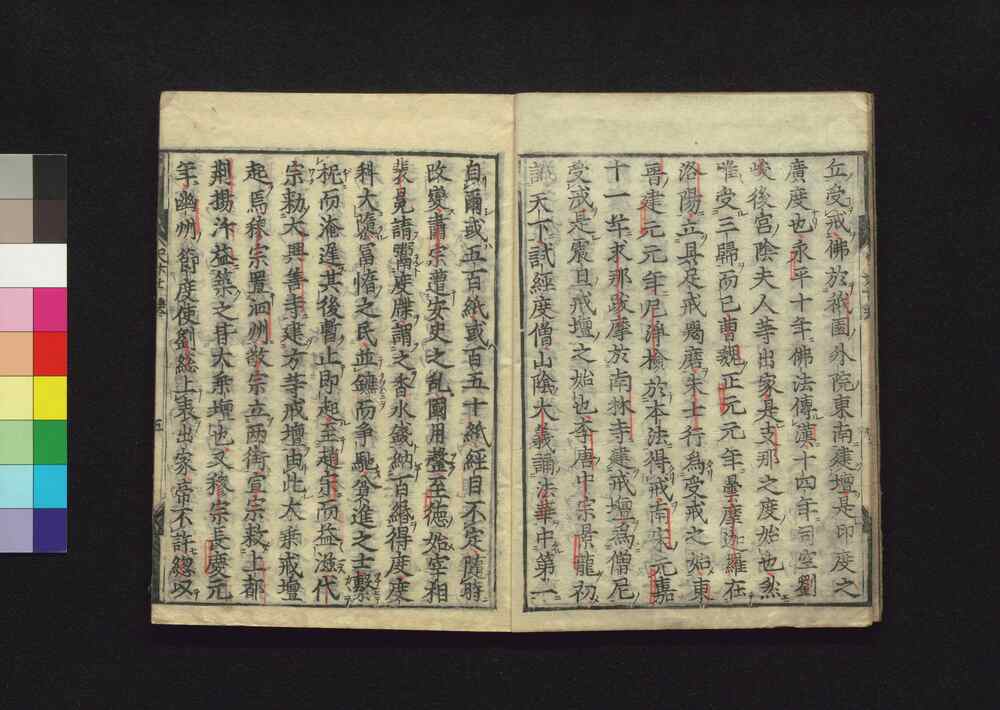 丘受戒佛於祇園外院東南建壇是印度之
廣度也永平十年佛法傳漢十四年司空劉
峻後宮陰夫人等出家是支那之度始也然
唯受三歸而已曹魏正元元年曇摩迦羅在
洛陽立具足戒羯磨朱士行爲受戒之始東
晉建元元年尼淨檢於本法得戒南宋元嘉
十一年求那跋摩於南林寺建戒壇爲僧尼
受戒是震旦戒壇之始也李唐中宗景龍初
詔天下試經度僧山陰大義誦法華中第一
自爾或五百紙或百五十紙經目不定隨時
改變肅宗遭安史之乱國用罄至德始宰相
裴冕請鬻度牒謂之香水錢納百緡得度度
科大隳冨惰之民並鑣而爭馳貧進之士繫
柅而淹遲其後暫止即起至趙宋而益滋代
宗勑大興善寺建方等戒壇由此大乘戒壇
起焉穆宗置泗州敬宗立兩街宣宗敕上都
荆揚汴益築之皆大乘壇也又穆宗長慶元
年幽州節度使劉総上表出家帝不許緫以